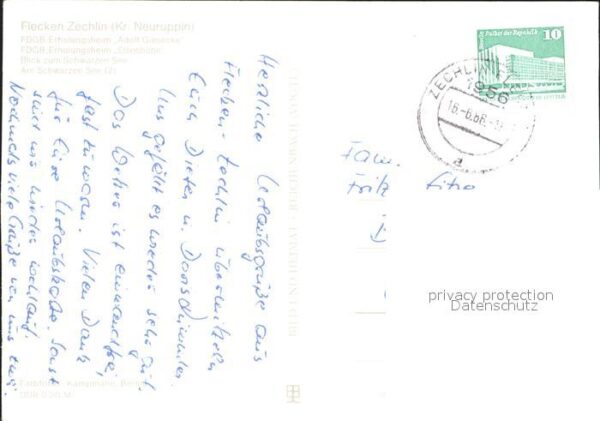 Flecken Zechlin (Kr. Neuruppin)
FDGB-Erholungsheim "Adolf Giesecke"
FDGB-Erholungsheim "Elsenhöhe"
Blick zum Schwarzen See
Am Schwarzen See (2)
Herzliche Urlaubsgrüße aus
Flecken-Zechlin übermitteln
Euch Dieter u. Doris
Uns gefällt es wieder sehr gut.
Das Wetter ist einwandfrei,
fast zu warm. Vielen Dank
für Eure Urlaubskarte. Sonst
sind wir wieder wohlauf.
Nochmals viele Grüße von uns
Palast der Republik
10
ZECHLIN
1956
16.-6.86
a
Fam.
Fritz
privacy protection
Datenschutz
Farbfoto: Kampmann, Berlin
DDR 0,20 M